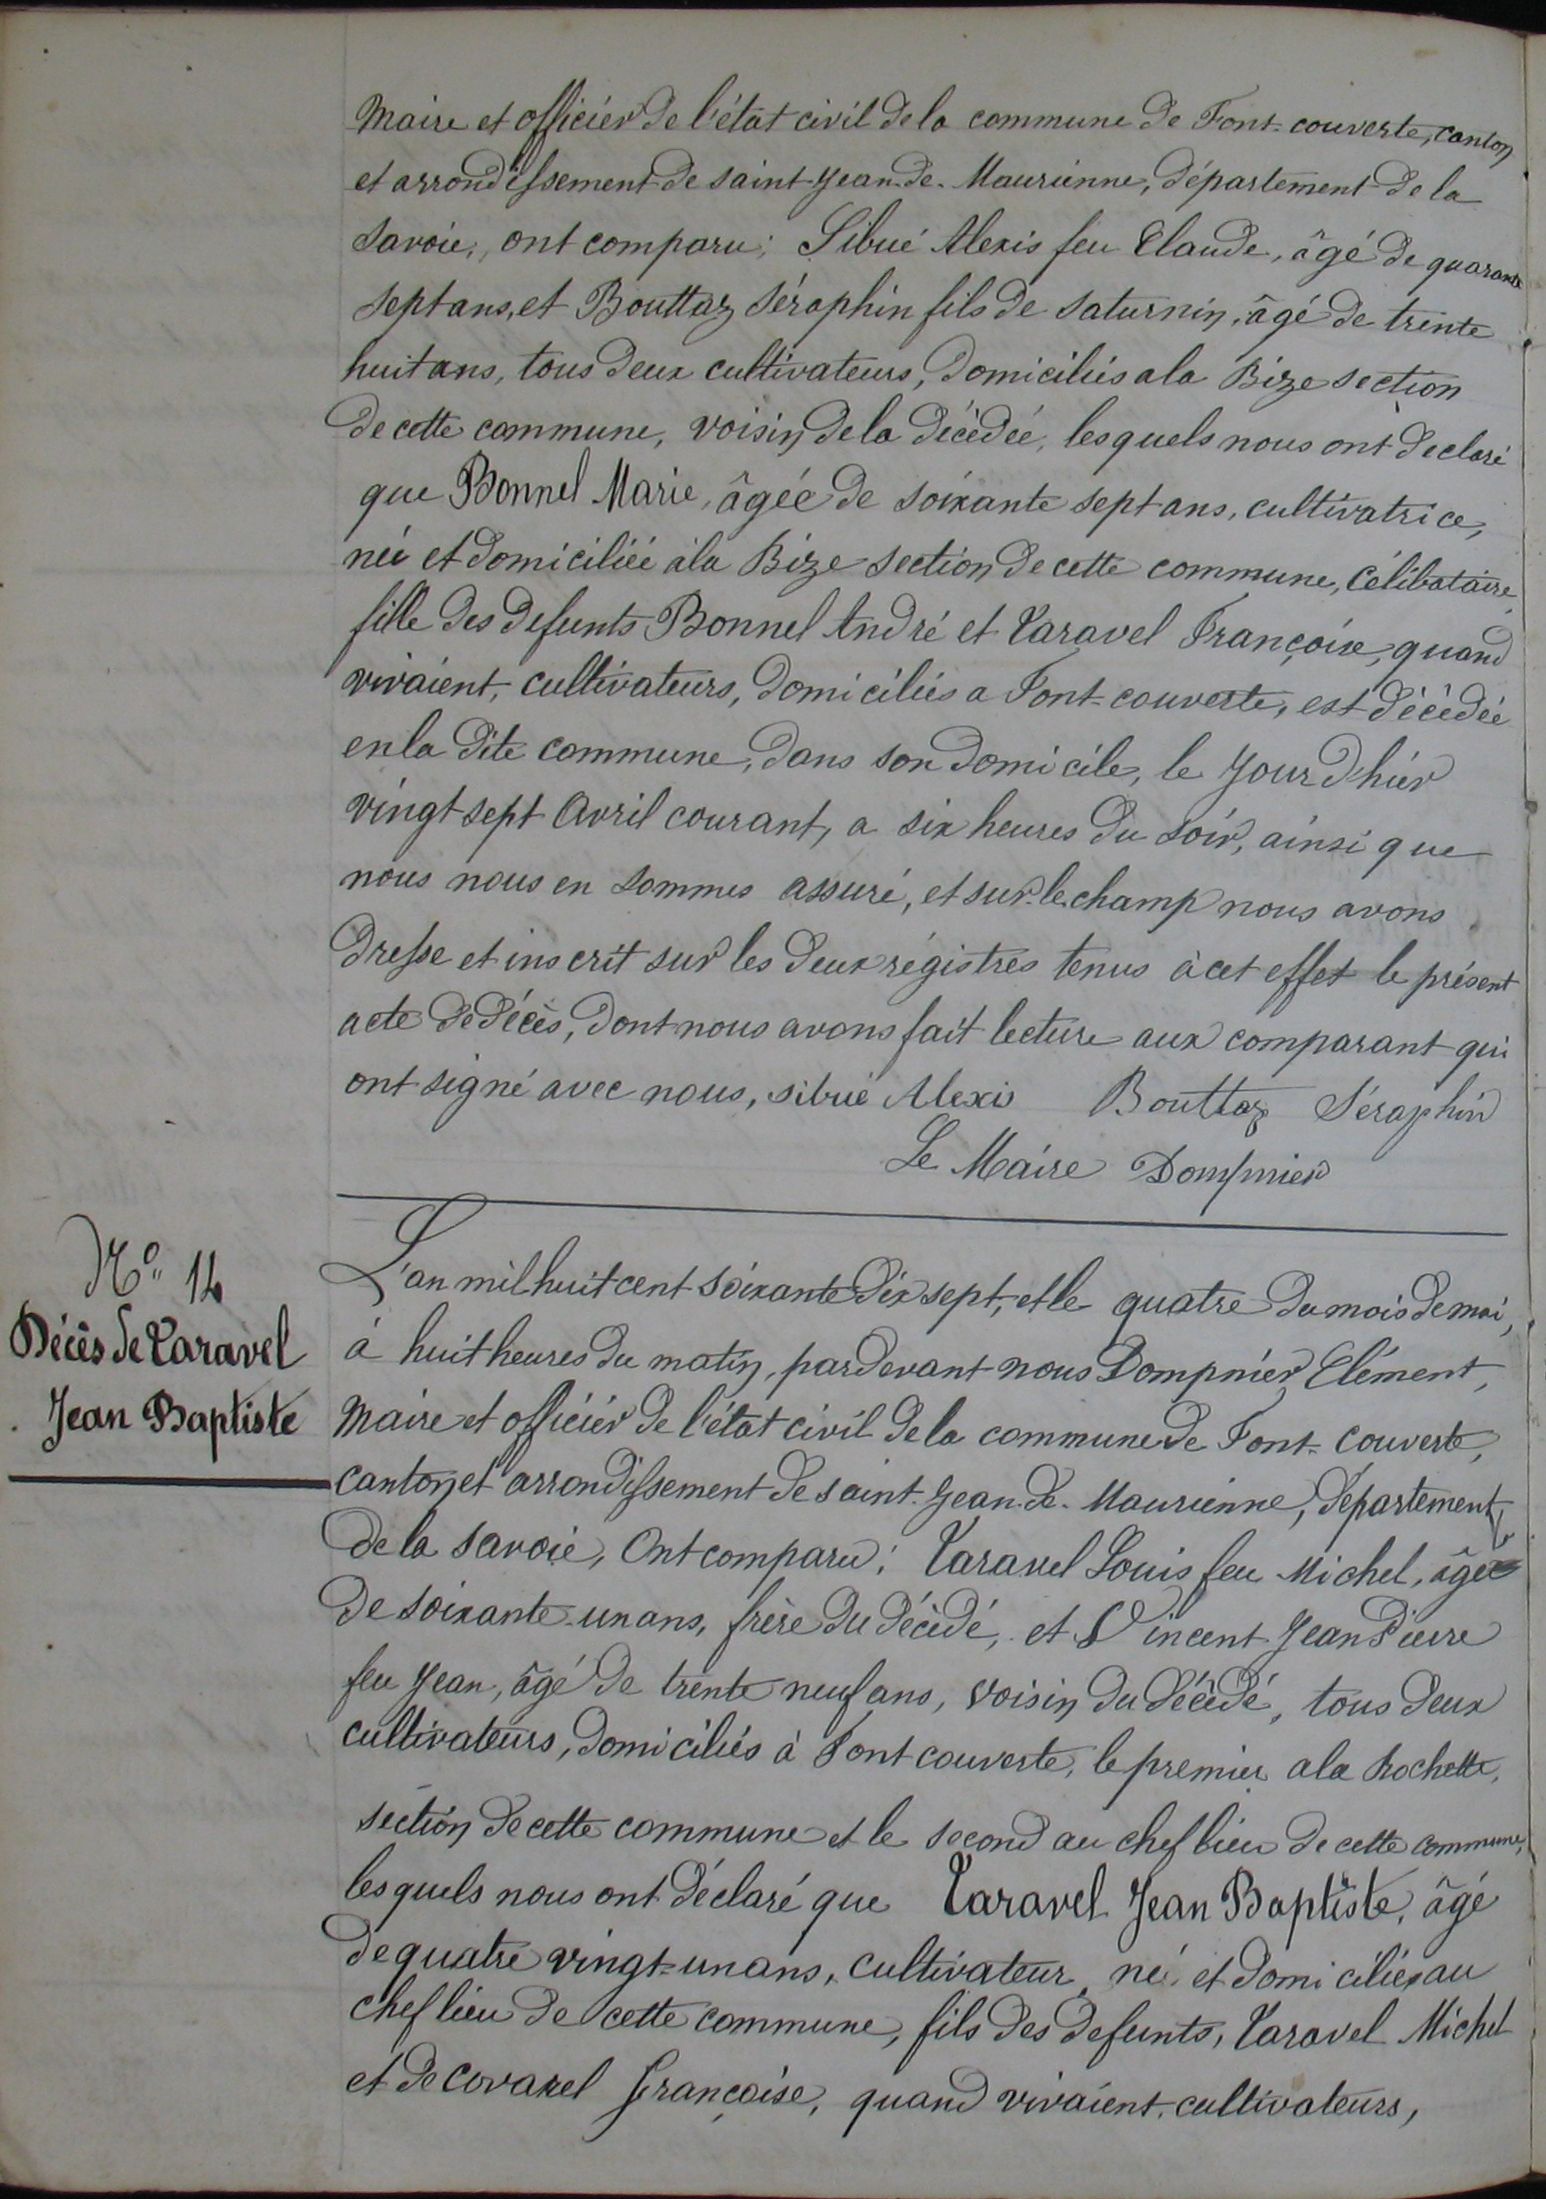 Maire et officier de l'état civil de la commune de Font-couverte, canton
et arrondissement de saint-jean-de-Maurienne, département de la
Savoie, ont comparu; Sibué Alexis feu Claude, âgé de quarante
sept ans, et Bouttaz Séraphin fils de saturnin, âgé de trente
huit ans, tous deux cultivateurs, domiciliés a la Bize section
de cette commune, voisin de la décèdée, lesquels nous ont déclaré
que Bonnel Marie, âgée de soixante sept ans, cultivatrice,
née et domiciliée à la Bize section de cette commune, célibataire,
fille des defunts Bonnel André et Taravel Françoise, quand
vivaient, cultivateurs, domiciliés a Font-couverte, est décèdée
en la dite commune, dans son domicile, le jour d'hier
vingt sept Avril courant, a six heures du soir, ainsi que
nous nous en sommes assuré, et sur-le-champ nous avons
dresse et inscrit sur les deux régistres tenus à cet effet le présent
acte de décès, dont nous avons fait lecture aux comparant qui
ont signé avec nous, sibué Alexis Bouttaz Séraphin
Le Maire Dompnier
N° 14
Décès de Taravel
Jean Baptiste
L'an mil huit cent soixante dix sept, et le quatre du mois de mai,
à huit heures du matin, pardevant nous Dompnier Clément,
Maire et officier de l'état civil de la commune de Font-couverte,
canton et arrondissement de saint-jean-de-Maurienne, département
de la savoie, Ont comparu; Taravel Louis feu Michel, âgé
de soixante-un ans, frère du décèdé, et Vincent Jean Pierre
feu Jean, âgé de trente neuf ans, voisin du décèdé, tous deux
cultivateurs, domiciliés à Font couverte, le premier a la Rochette,
section de cette commune et le second au chef lieu de cette commune,
lesquels nous ont déclaré que Taravel Jean Baptiste, âgé
de quatre vingt-un ans, cultivateur, né et domicilié au
chef lieu de cette commune, fils des defunts, Taravel Michel
et de Covarel françoise, quand vivaient, cultivateurs,